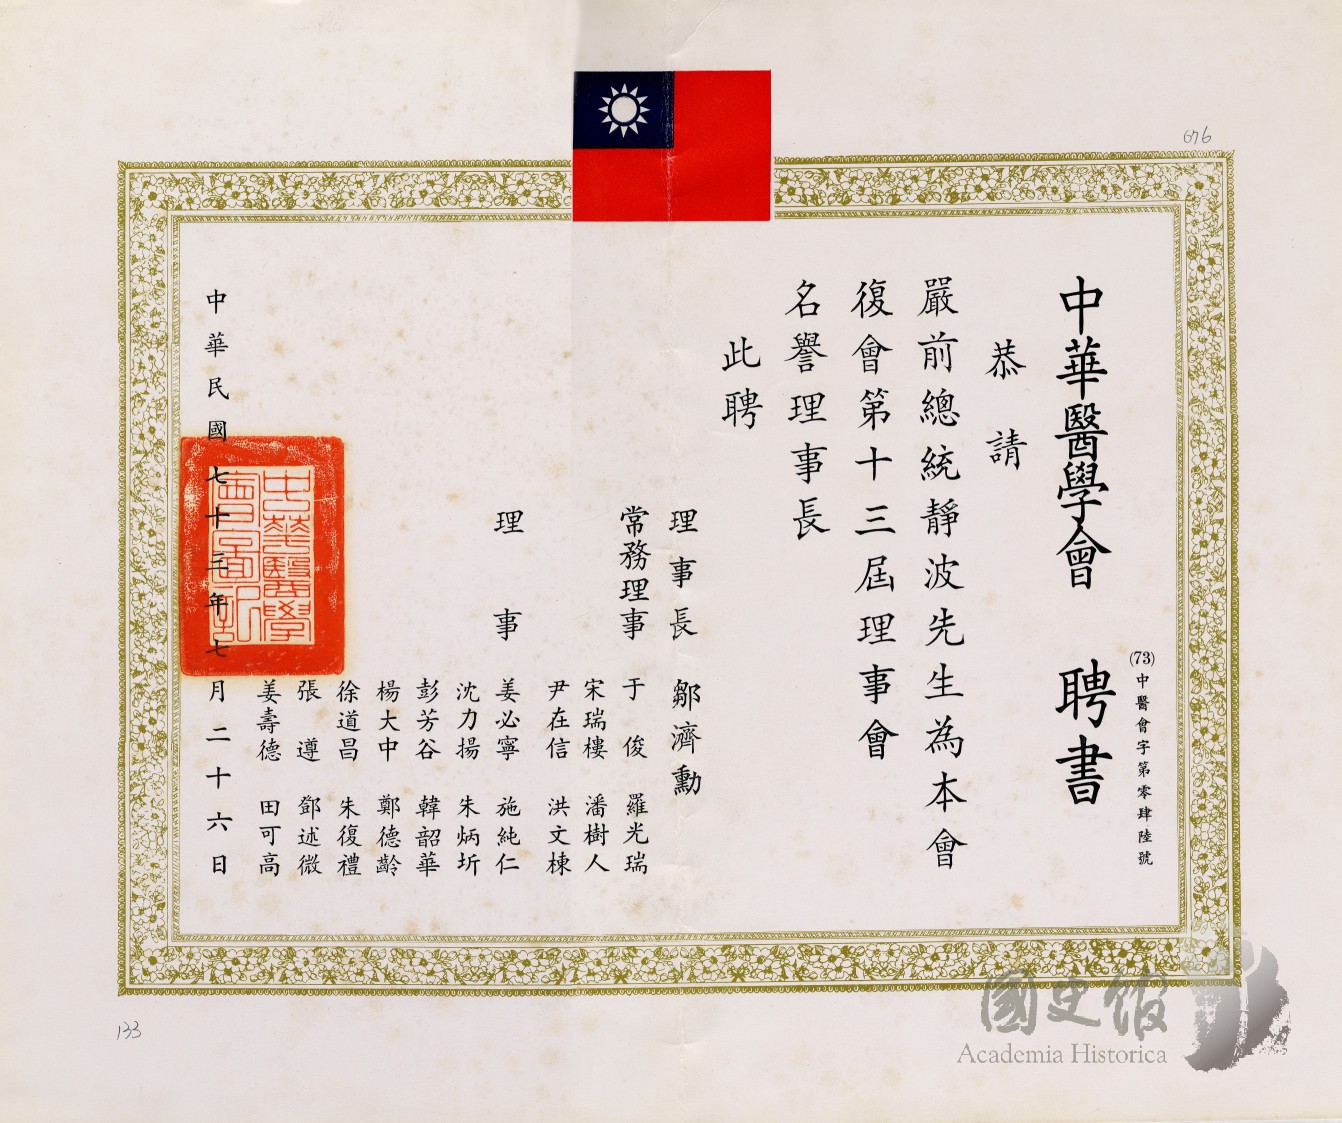 676
中華醫學會 聘書
(73)中醫會字第零肆陸號
恭請
嚴前總統靜波先生為本會
復會第十三屆理事會
名譽理事長
此聘
理事長 鄒濟勳
常務理事 于俊 羅光瑞
宋瑞樓 潘樹人
尹在信 洪文棟
理事 姜必寧 施純仁
沈力揚 朱炳圻
彭芳谷 韓韶華
楊大中 鄭德齡
徐道昌 朱復禮
張遵 鄧述微
姜壽德 田可高
中華民國七十三年七月二十六日
中華醫學
會圖記
133
國史館
Academia Historica